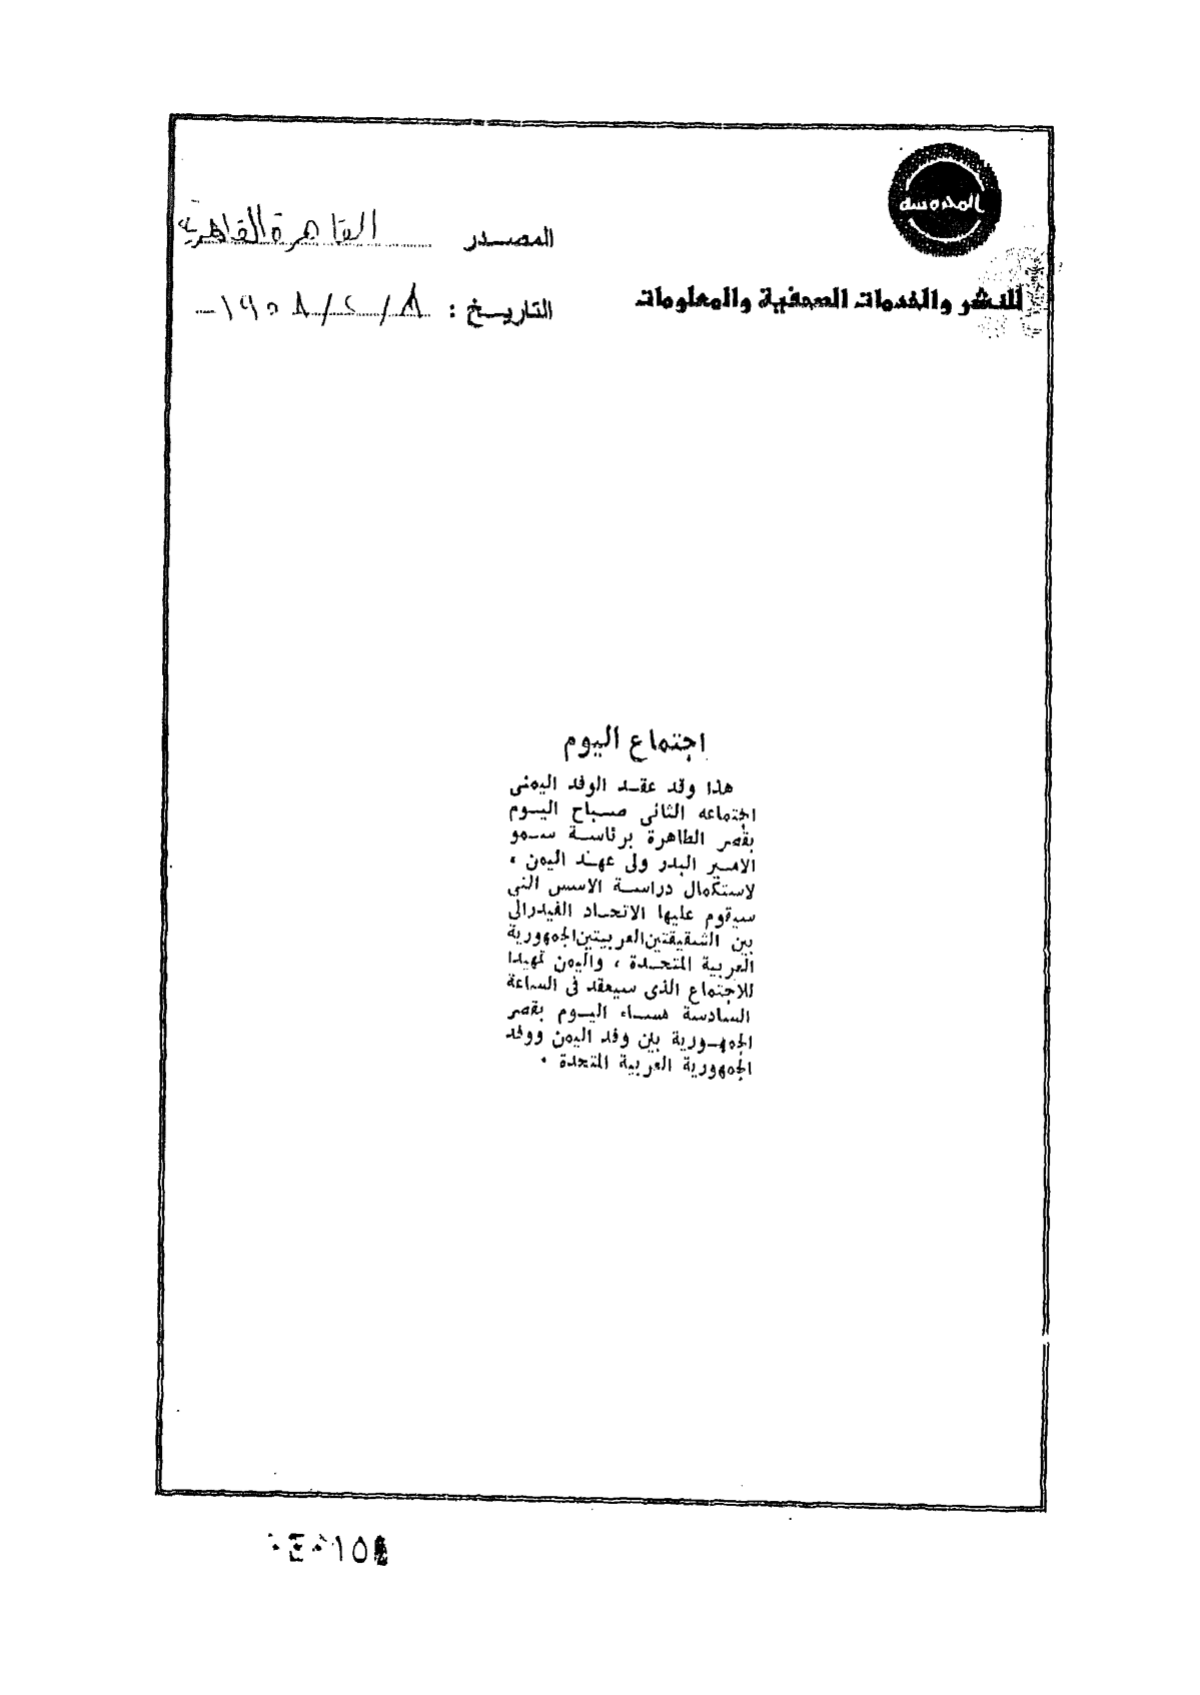 المحروسة
للنشر والخدمات الصحفية والمعلومات
المصدر القاهرة القاهرية
التاريخ : ٨/٢/١٩٥٨
اجتماع اليوم
هذا وقد عقد الوفد اليمنى
اجتماعه الثانى صباح اليوم
بقصر الطاهرة برئاسة سمو
الامير البدر ولى عهد اليمن ،
لاستكمال دراسة الاسس التى
سيقوم عليها الاتحاد الفيدرالى
بين الشقيقتين العربيتين الجمهورية
العربية المتحدة ، واليمن تمهيدا
للاجتماع الذى سيعقد فى الساعة
السادسة مساء اليوم بقصر
الجمهورية بين وفد اليمن ووفد
الجمهورية العربية المتحدة .